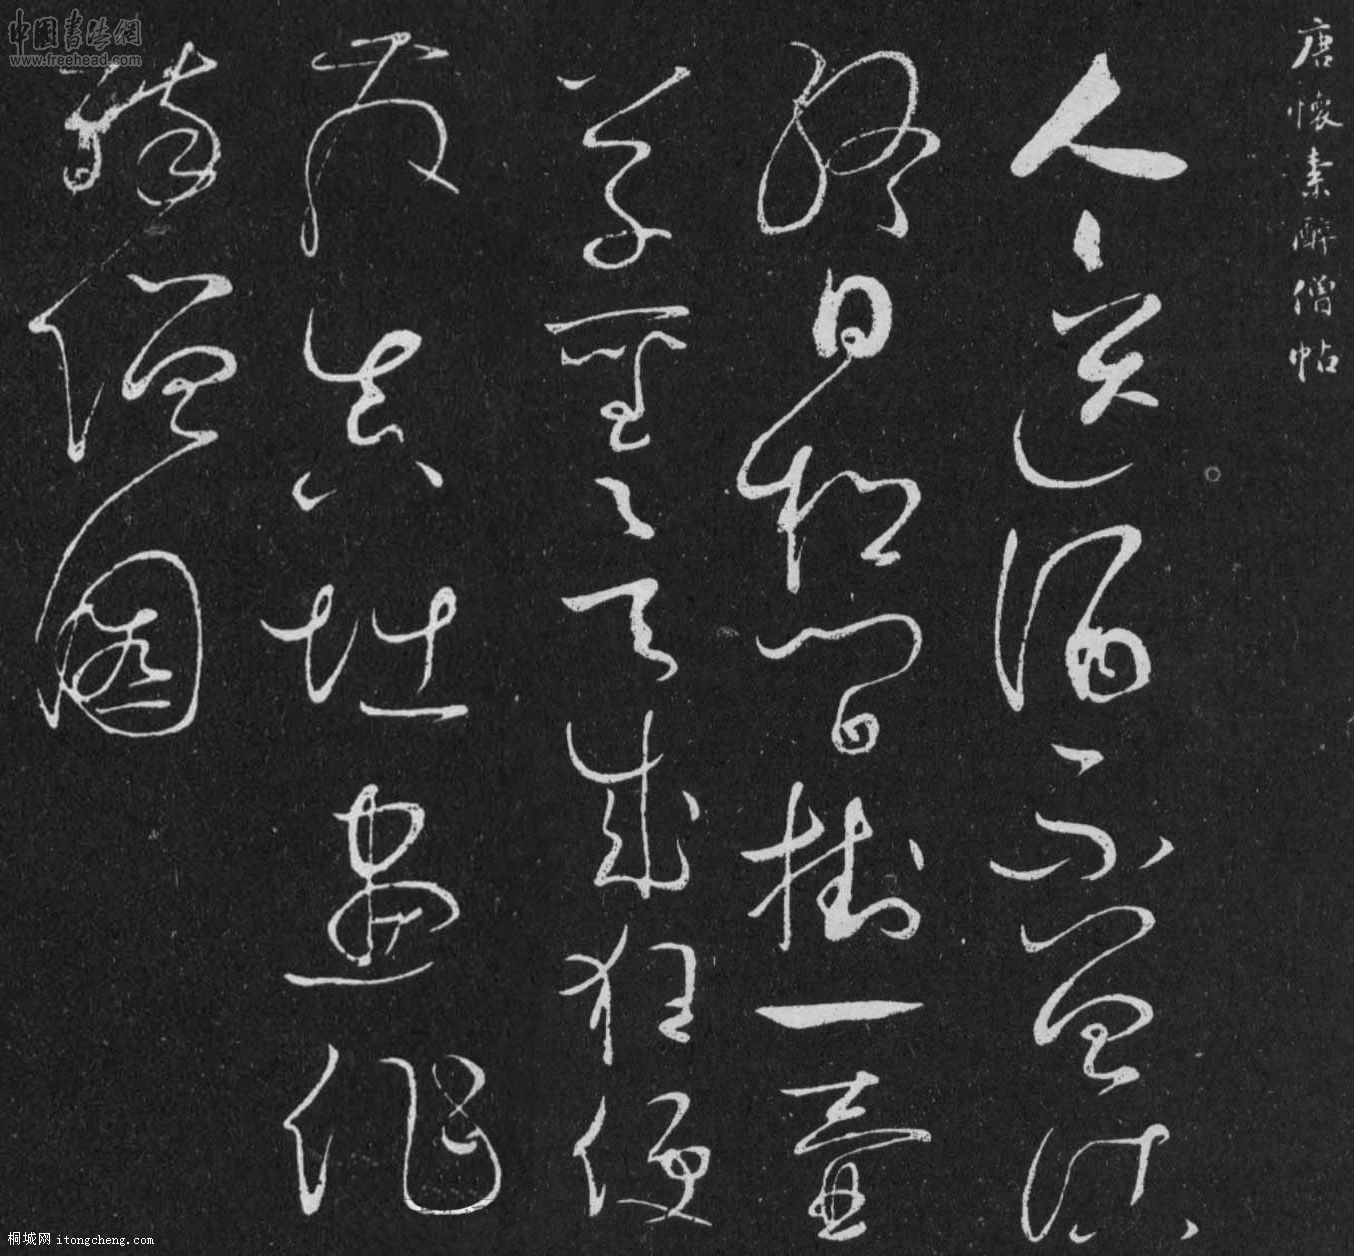 中国書法網
www.freehead.com
唐懷素醉僧帖
人人送酒不曾沽
終日松間掛一壺
草聖欲成狂便
發真堪畫作
醉僧圖
桐城网 itongcheng.com